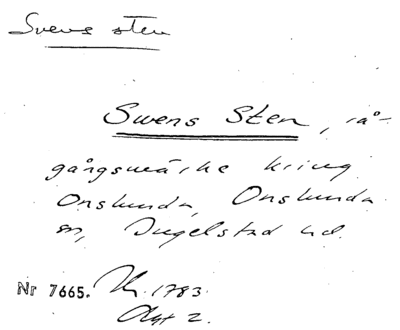 Svens sten
Swens Sten, rå-
gångsmärke kring
Onslunda, Onslunda
sn, Ingelstad hd.
Nr 7665. 1783.
Akt 2.